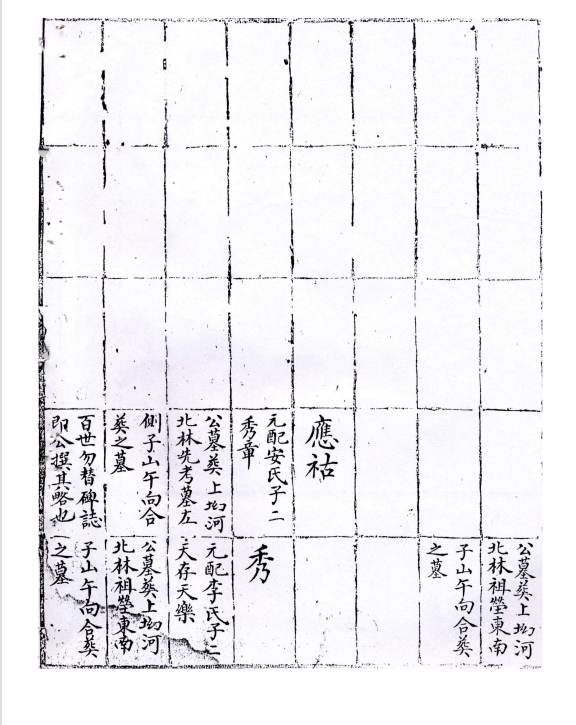 應祜
元配安氏子二
秀章
公墓葬上坳河
北林先考墓左
側子山午向合
葬之墓
百世勿替碑誌
即公撰其略也
公墓葬上坳河
北林祖塋東南
子山午向合葬
之墓
秀
元配李氏子二
天存天樂
公墓葬上坳河
北林祖塋東南
子山午向合葬
之墓